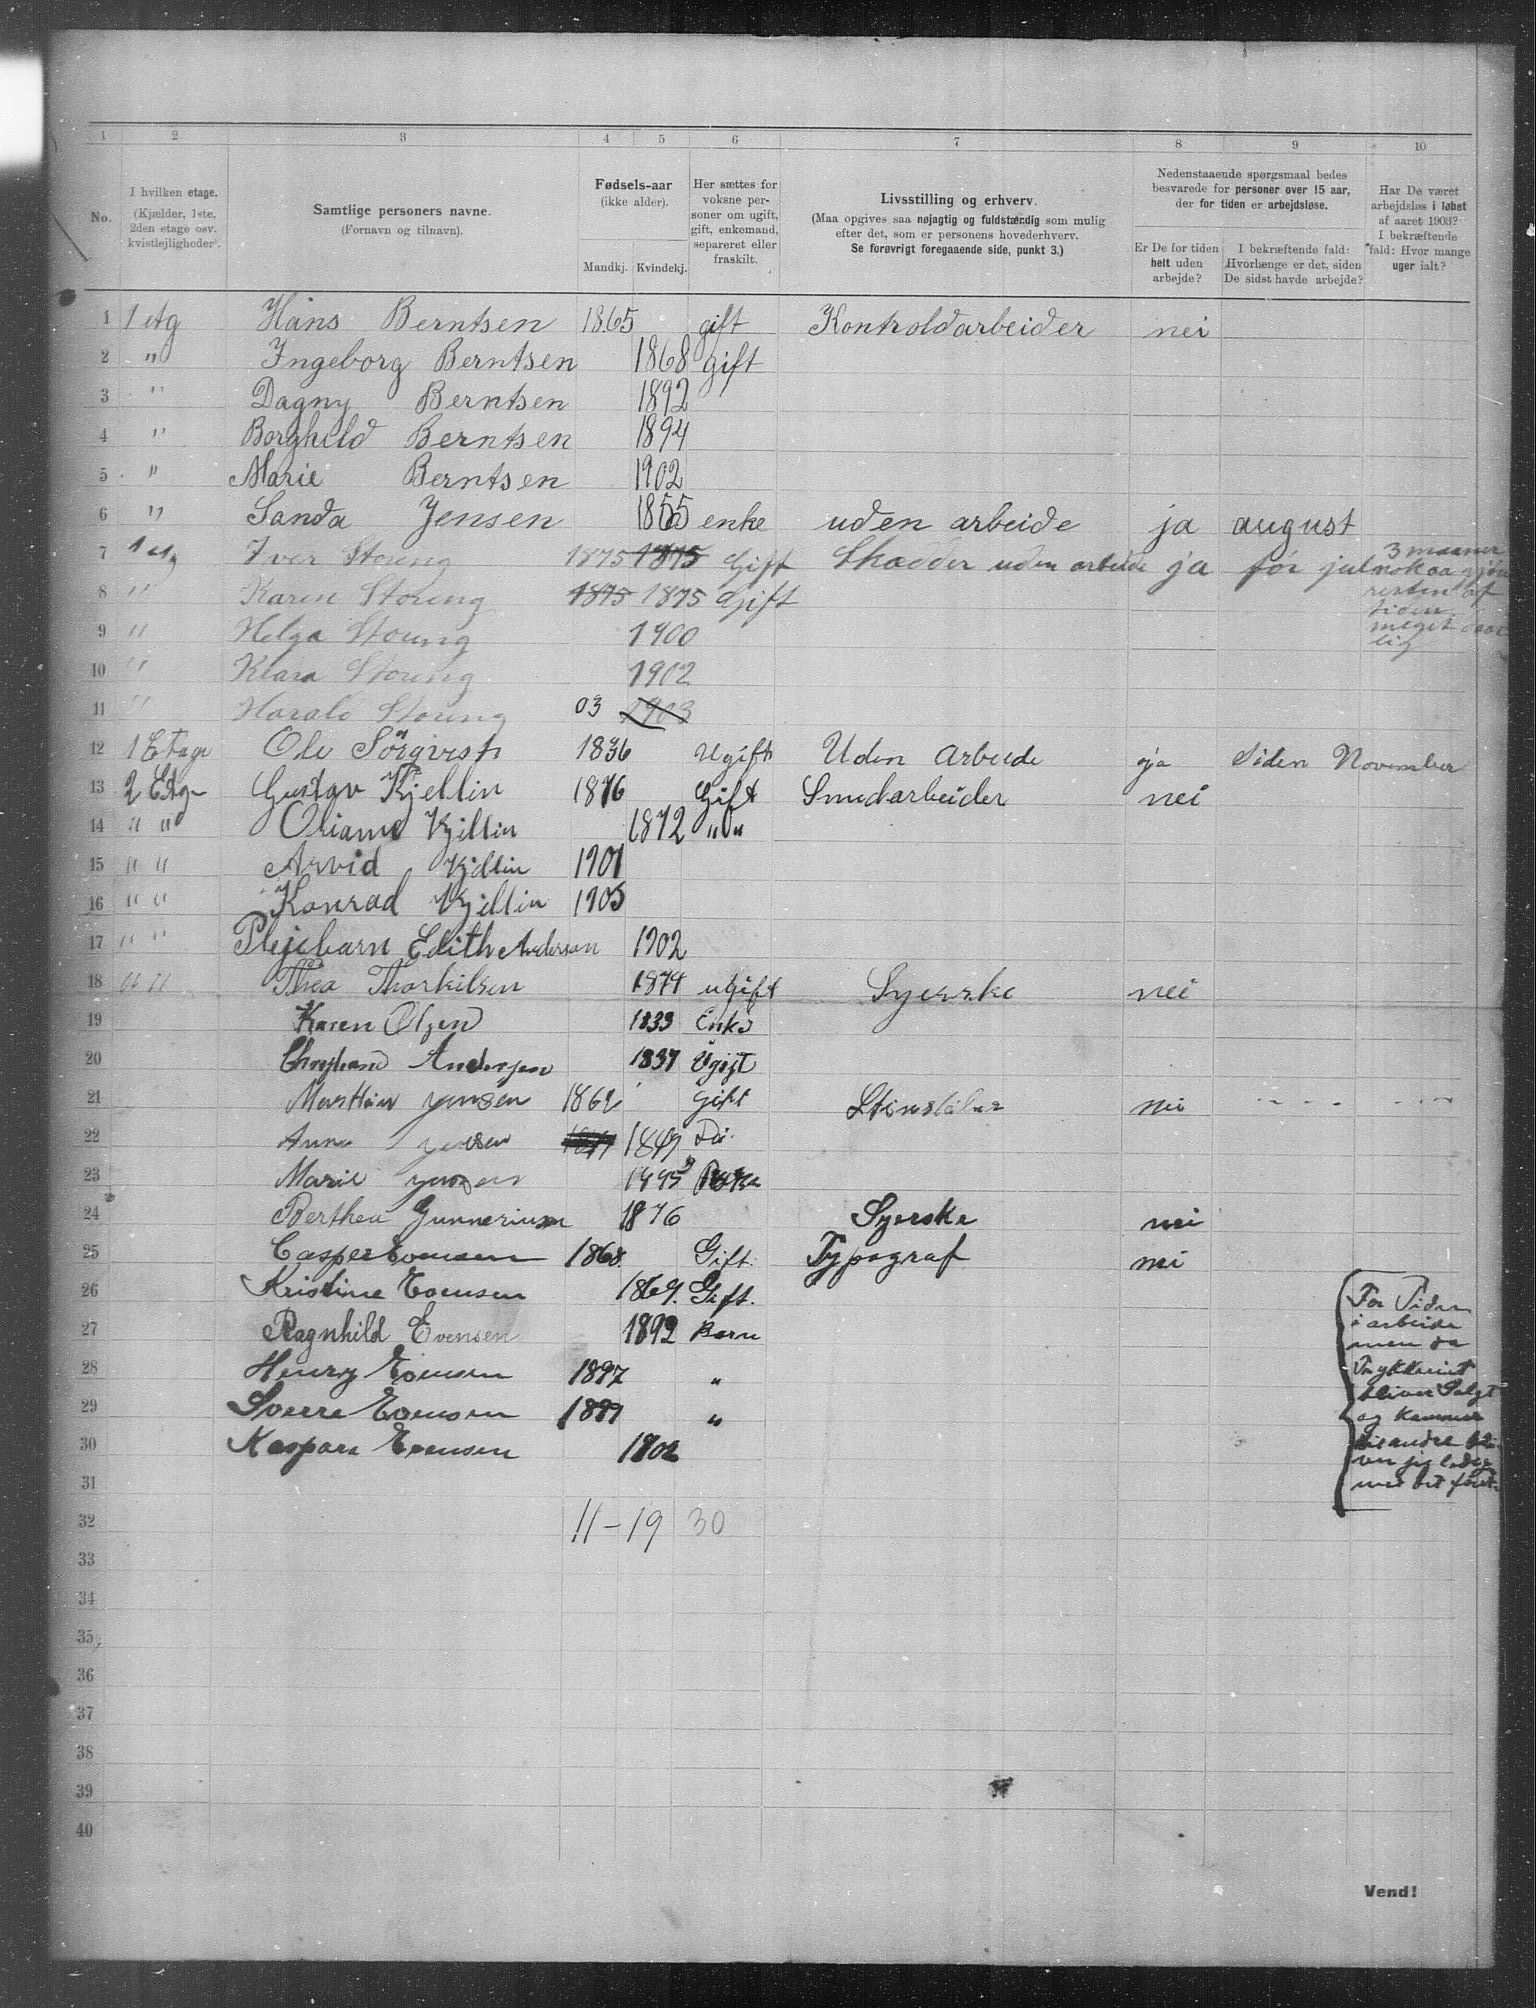 1 2 3 4 5 6 7 8 9 10
No.
I hvilken etage.
(Kjælder, 1ste,
2den etage osv.
kvistlejligheder).
Samtlige personers navne.
(Fornavn og tilnavn).
Fødsels-aar
(ikke alder).
Mandkj. Kvindekj.
Her sættes for
voksne per-
soner om ugift,
gift, enkemand,
separeret eller
fraskilt.
Livsstilling og erhverv.
(Maa opgives saa nøjagtig og fuldstærdig som mulig
efter det, som er personens hovederhverv.
Se forøvrigt foregaaende side, punkt 3.)
Nedenstaaende spørgsmaal bedes
besvarede for personer over 15 aar,
der for tiden er arbejdsløse.
Er De for tiden
helt uden
arbejde?
I bekræftende fald:
Hvorlænge er det, siden
De sidst havde arbejde?
Har De været
arbejdsløs i løbet
af aaret 1903?
I bekræftende
fald: Hvor mange
uger ialt?
1 1 etg Hans Berntsen 1865 gift Kontroldarbeider nei
2 " Ingeborg Berntsen 1868 gift
3 " Dagny Berntsen 1892
4 " Borghild Berntsen 1894
5 " Marie Berntsen 1902
6 " Sanda Jensen 1855 enke uden arbeide ja august
7 1 etg Iver Stoung 1875 1875 Gift Skædder uden arbeide ja før jul
3 maaner
nok aa gjøre
resten af
tiden
meget daar
lig
8 " Karen Stoung 1875 1875 Gift
9 " Helga Stoung 1900
10 " Klara Stoung 1902
11 " Harald Stoung 03 1903
12 1 Etage Ole Sörqvist 1836 Ugift Uden arbeide ja Siden November
13 2 Etg Gustav Kjellin 1876 Gift Smedarbeider nei
14 " " Kjellin 1872 " "
15 " " Arvid Kjellin 1901
16 " " Konrad Kjellin 1903
17 " " Plejebarn Edith Anderson 1902
18 " " Thea Thorkilsen 1874 ugift Syerske nei
19 Karen Olsen 1833 Enke
20 Andersen 1837 Ugift
21 Jensen 1862 Gift nei
22 Anna Jensen 1849 Do.
23 Marie Jensen
24 Berthea Gunnerius 1876 Syerske nei
25 Casper Evensen 1868. Gift. Typograf nei
26 Kristine Evensen 1869. Gift.
27 Ragnhild Evensen 1892 Barn
28 Henry Evensen 1897 "
29 Sverre Evensen 1899 "
30 Kaspara Evensen 1902
For Tiden
i arbeide
men da
Trykkeriet
bliver Solgt
og kommer
til andre bli
ver jeg ledig
med det først
31
32 11 - 19 30
33
34
35
36
37
38
39
40
Vend!